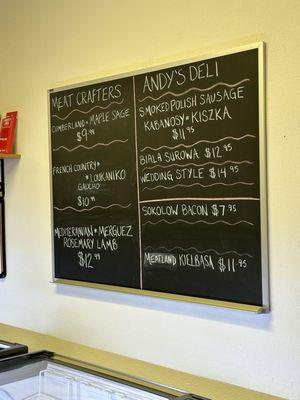 MEAT CRAFTERS
CUMBERLAND • MAPLE SAGE
$9.99
FRENCH COUNTRY •
• LOUKANIKO
GAUCHO
$10.99
MEDITERANIAN • MERGUEZ
ROSEMARY LAMB
$12.99
ANDY'S DELI
SMOKED POLISH SAUSAGE
KABANOSY • KISZKA
$11.95
BIALA SUROWA $12.95
WEDDING STYLE $14.95
SOKOLOW BACON $7.95
MEATLAND KIELBASA $11.95